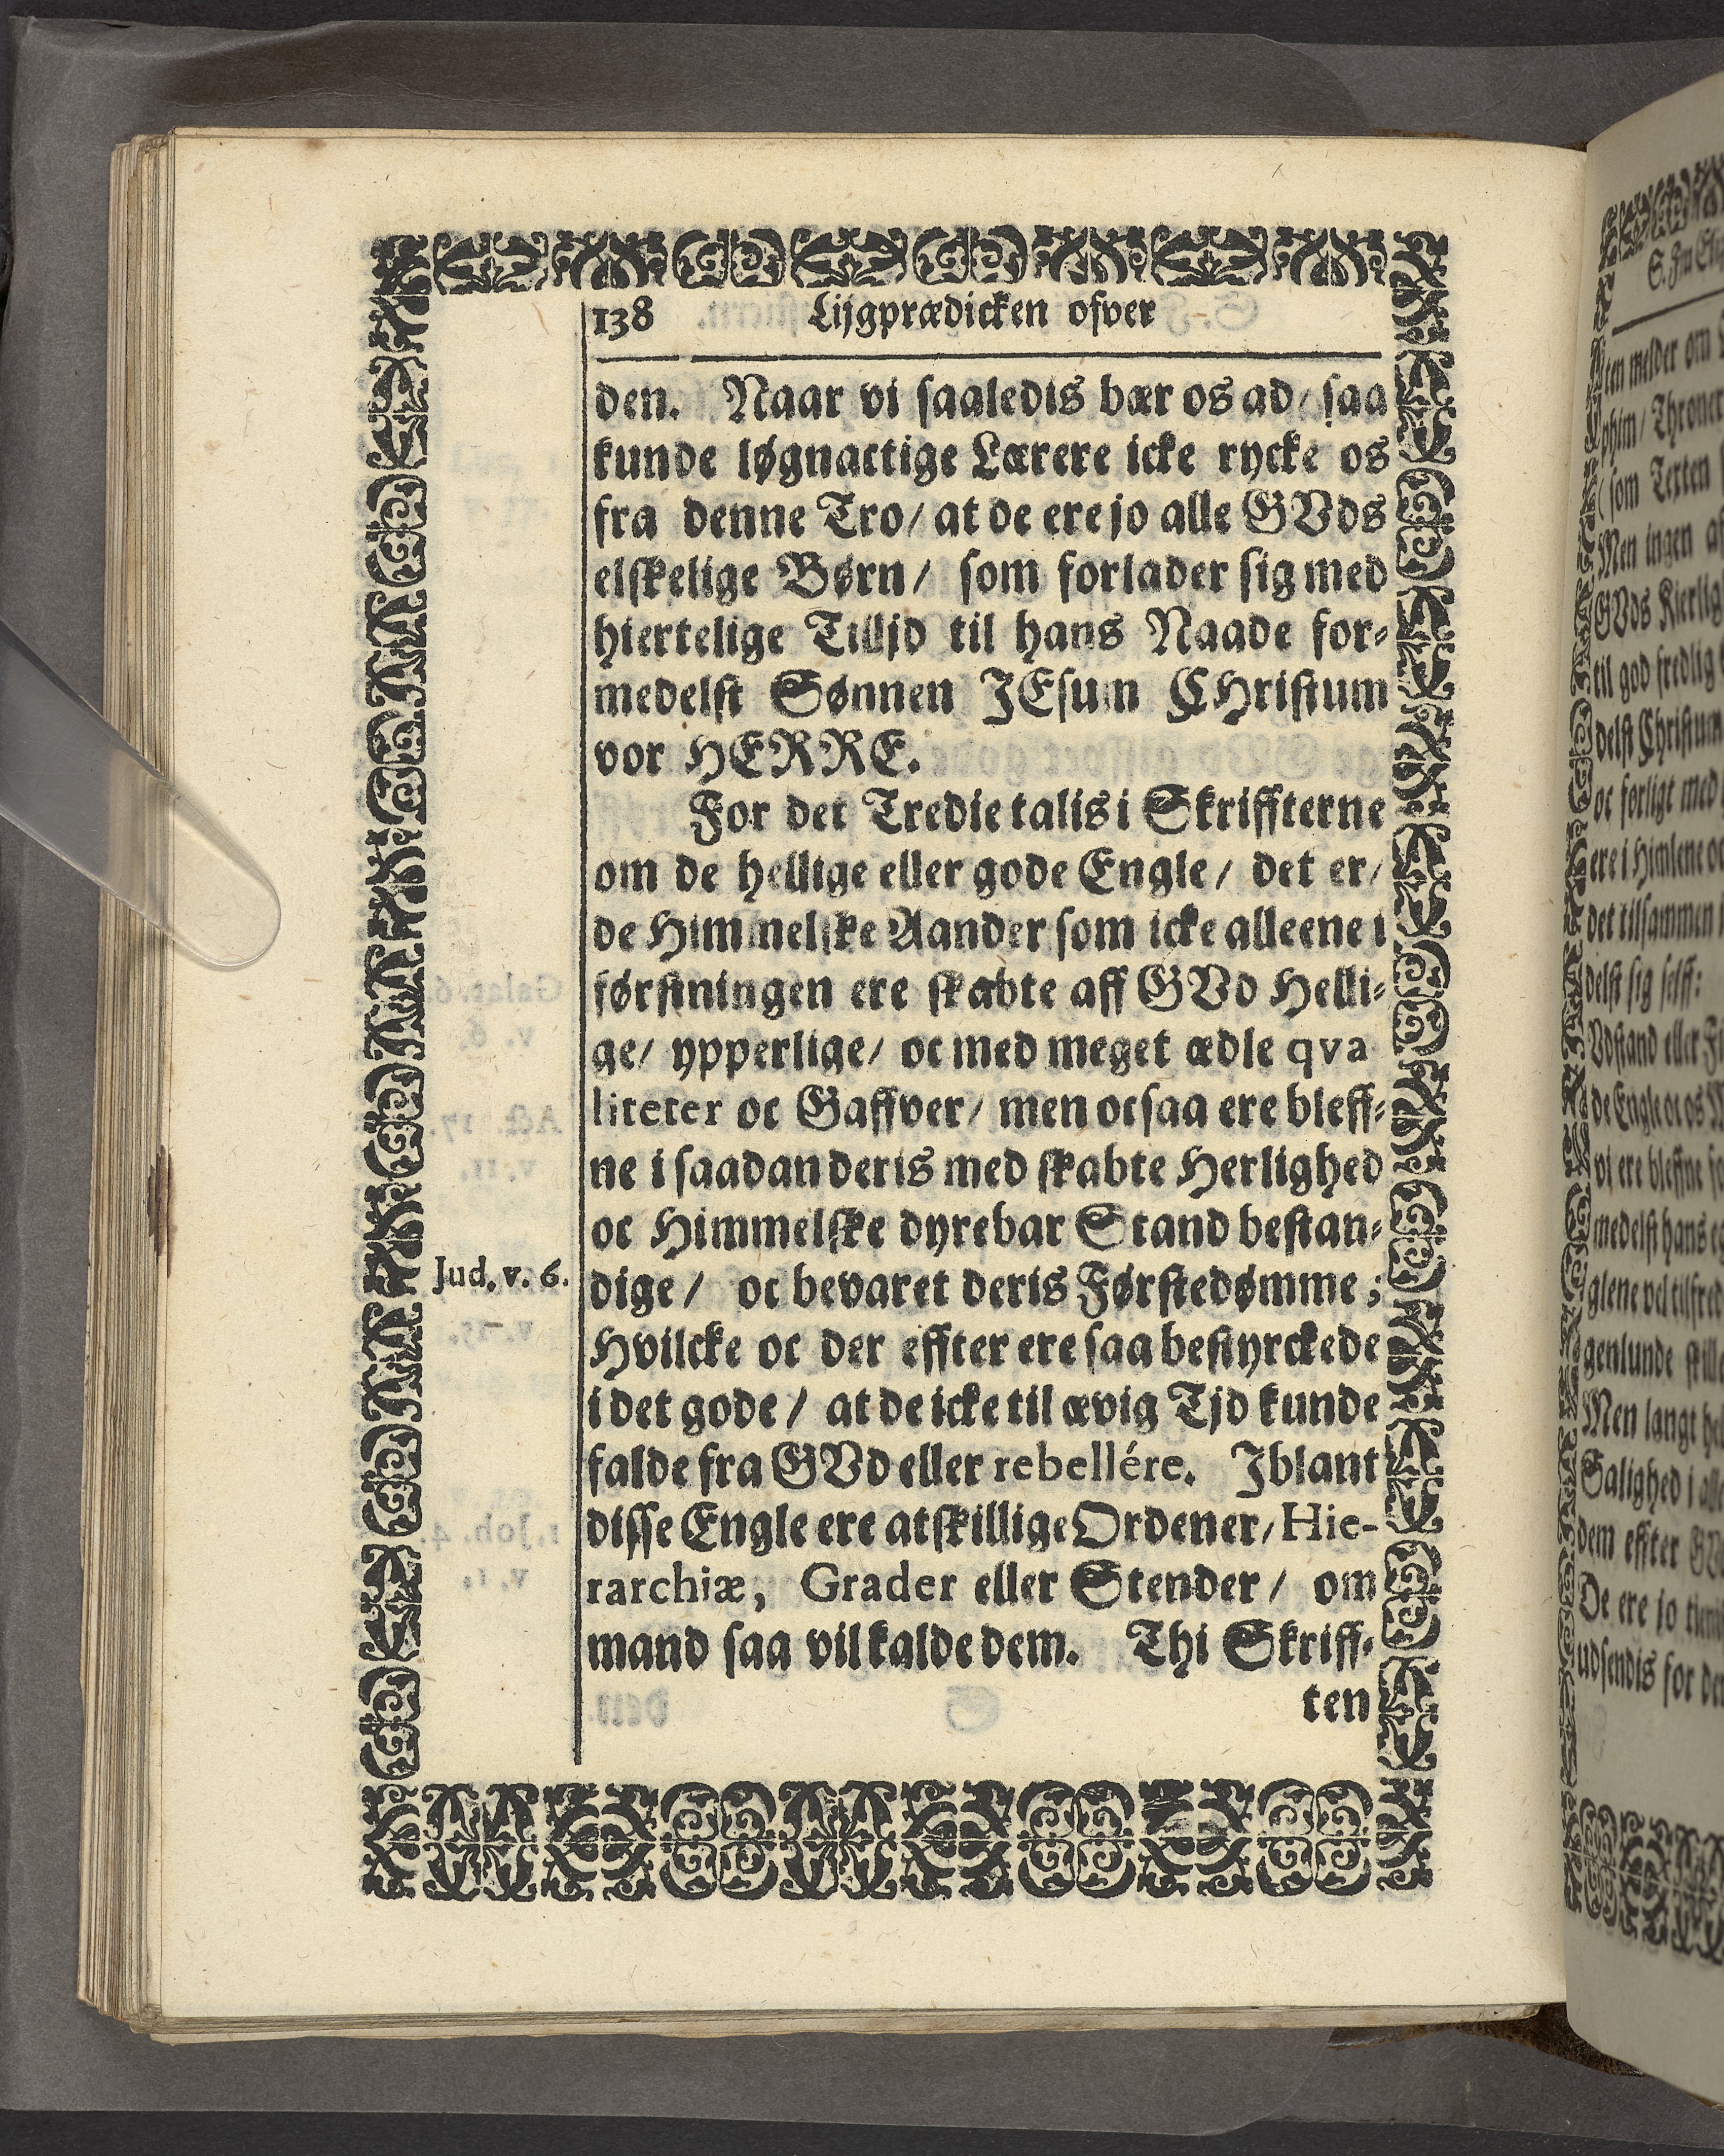 138 Lijgprædicken ofver
den. Naar vi saaledis bær os ad/ saa
kunde løgnactige Lærere icke rycke os
fra denne Tro/ at de ere jo alle GVds
elskelige Børn/ som forlader sig med
hiertelige Tilljd til hans Naade for-
medelst Sønnen JEsum CHristum
vor HERRE.
For det Tredie talis i Skriffterne
om de hellige eller gode Engle/ det er/
de Himmelske Aander som icke alleene i
førstningen ere skabte aff GVd Helli-
ge/ ypperlige/ oc med meget ædle qva
liteter oc Gaffver/ men ocsaa ere bleff-
ne i saadan deris med skabte Herlighed
oc Himmelske dyrebar Stand bestan-
Jud. v. 6.
dige/ oc bevaret deris Førstedømme;
Hvilcke oc der effter ere saa bestyrckede
i det gode/ at de icke til ævig Tjd kunde
falde fra GVd eller rebellére. Jblant
disse Engle ere atskillige Ordener/ Hie-
rarchiæ, Grader eller Stender/ om
mand saa vil kalde dem. Thi Skriff-
ten
tem melder om
phim/ Throner
(som Texten
Men ingen af
GVds Kierlig
til god fredlig
delst Christum
oc forligt med
ere i Himlene oc
det tilsammen
delst sig self:
Vdstand eller
de Engle oc os
vi ere bleffne
medelst hans
glene vel tilfred
genlunde stille
Men langt
Salighed i alle
dem effter
De ere jo
udsendis for